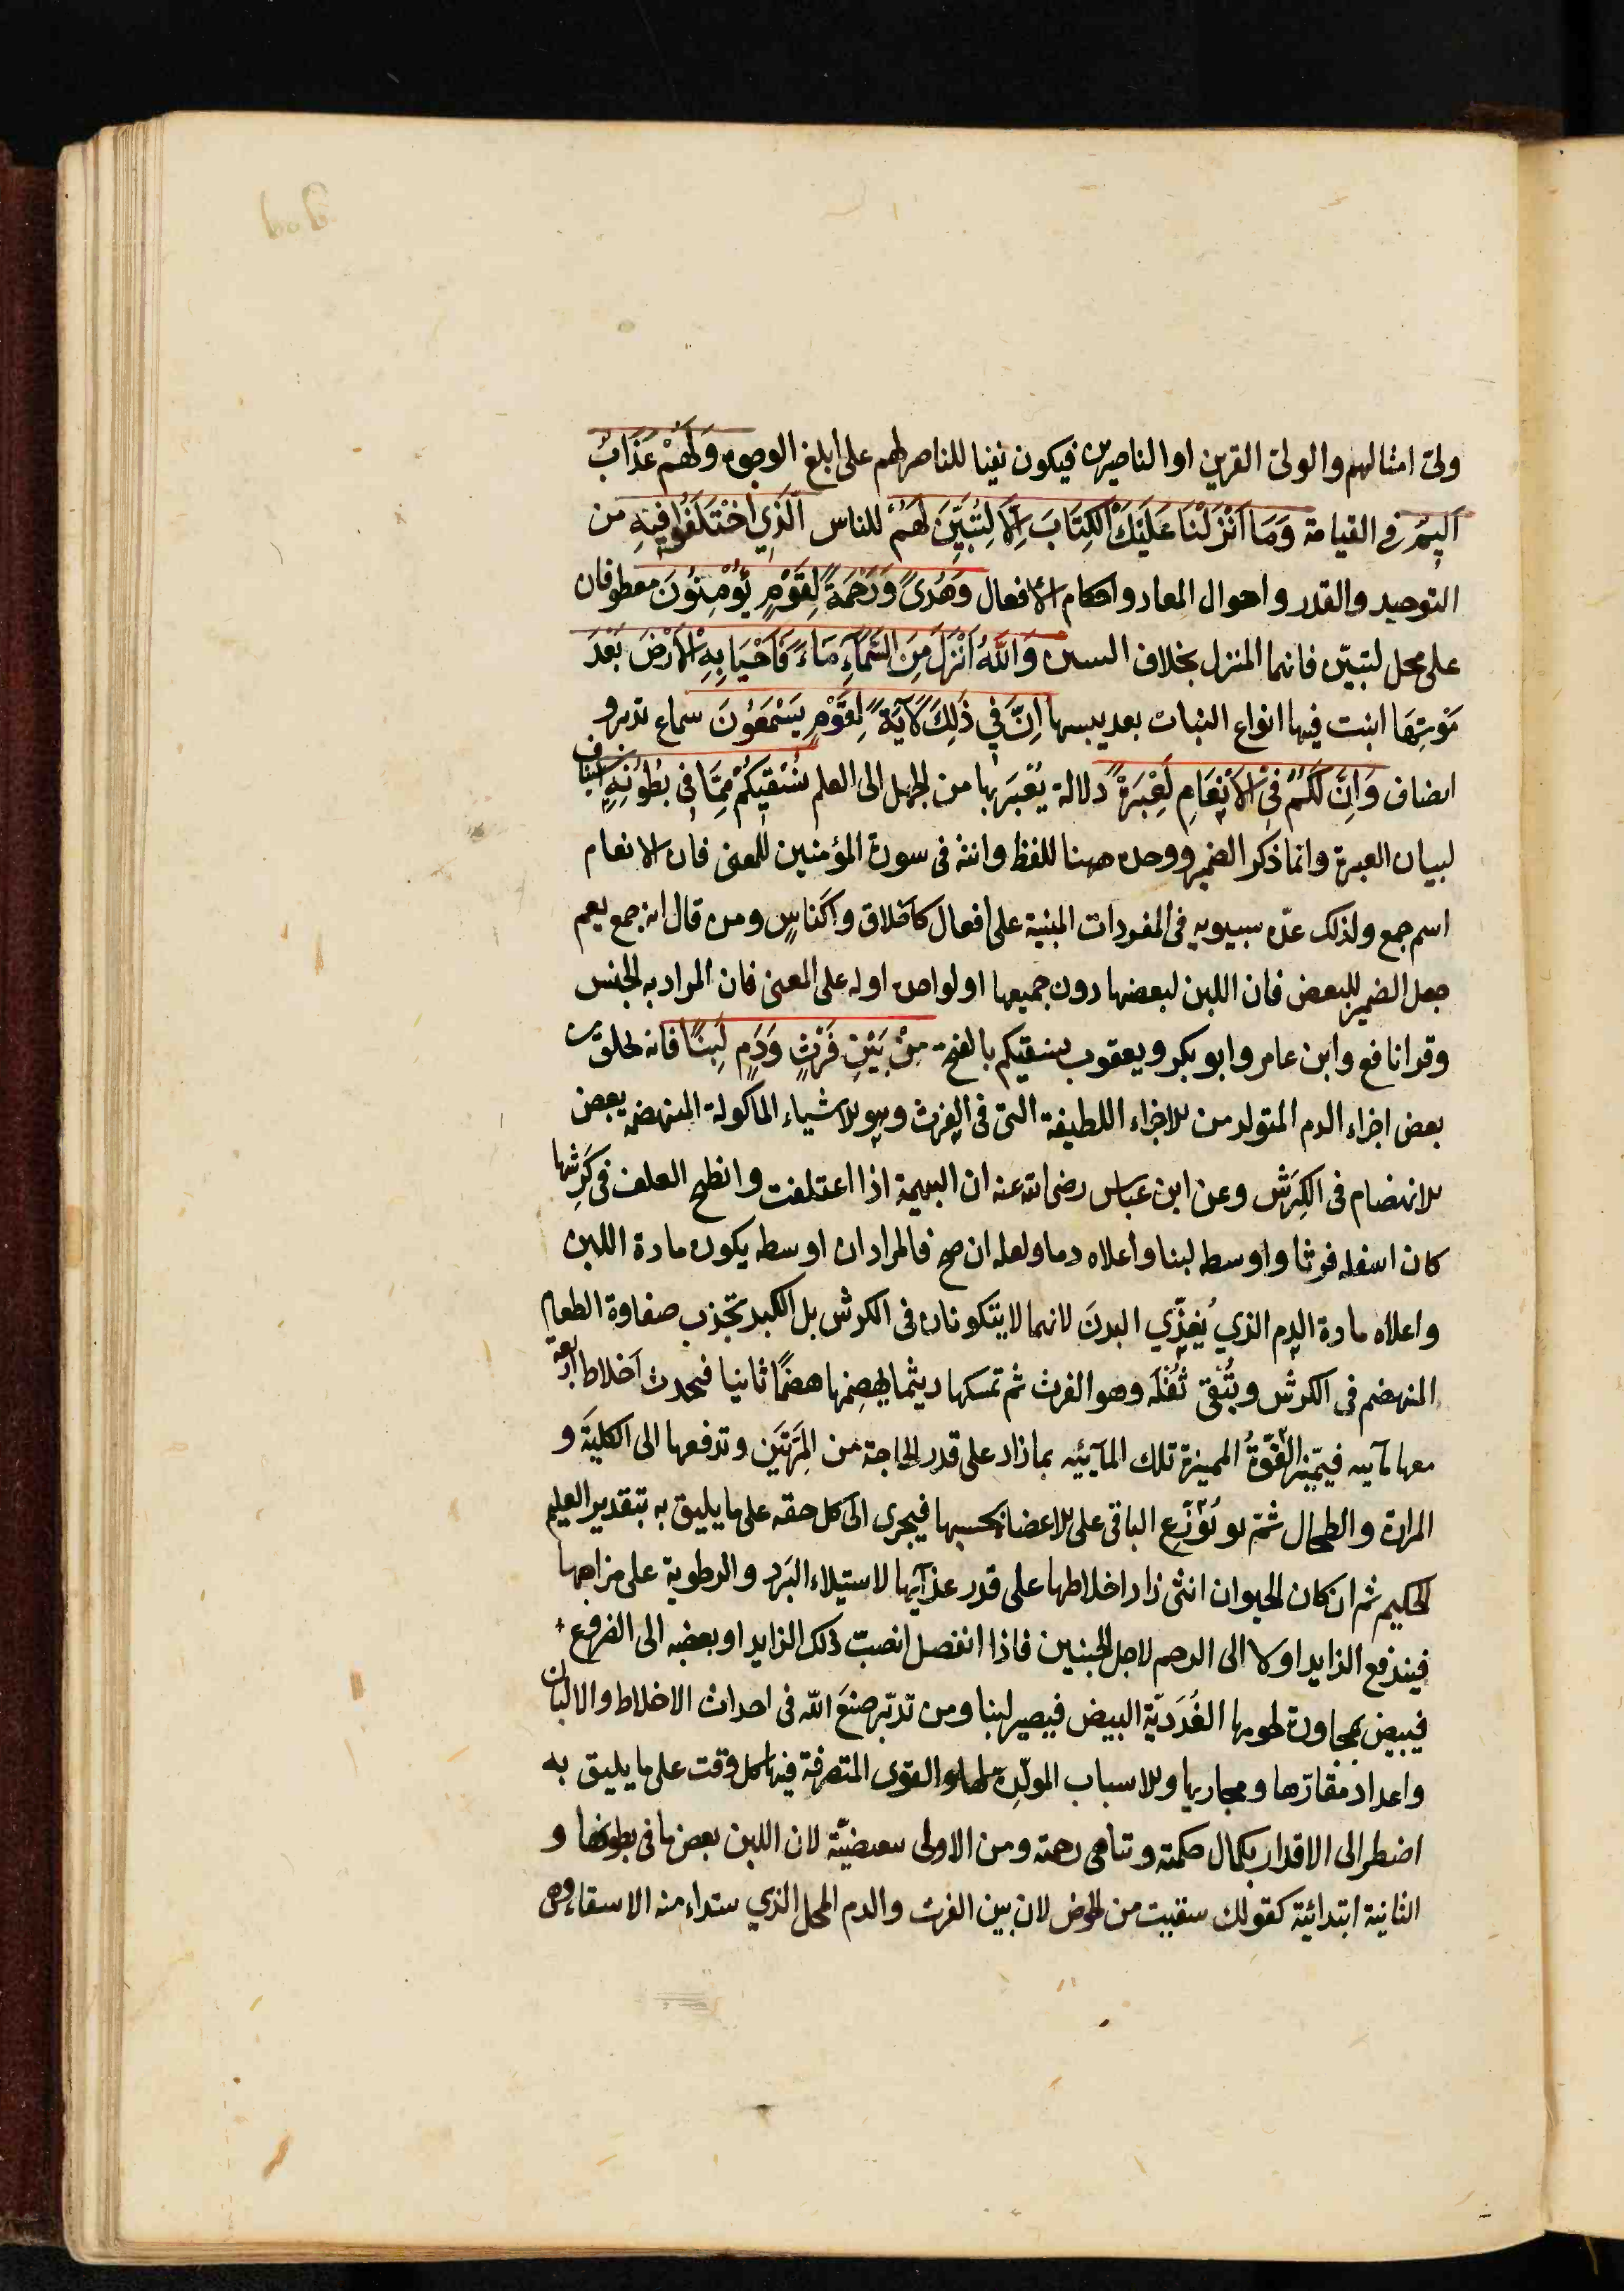 ولىّ امثالهم والولىّ القرين او الناصر فيكون نفيا للناصر لهم على ابلغ الوجوه وَلَهُمْ عَذَابٌ
اَلِيمٌ في القيامة وَمَا اَنْزَلْنَا عَلَيْكَ الْكِتَابَ اِلَّا لِتُبَيِّنَ لَهُمُ للناس الَّذِي اخْتَلَفُوا فِيهِ من
التوحيد والقدر واحوال المعاد واحكام الافعال وَهُدًى وَرَحْمَةً لِقَوْمٍ يُؤْمِنُونَ معطوفان
على محل لتبيّن فانهما المنزل بخلاف التبيين وَاللَّهُ اَنْزَلَ مِنَ السَّمَاءِ مَاءً فَاَحْيَا بِهِ الْاَرْضَ بَعْدَ
مَوْتِهَا انبت فيها انواع النبات بعد يبسها اِنَّ فِي ذَلِكَ لَآيَةً لِقَوْمٍ يَسْمَعُونَ سماع تدبر و
انصاف وَاِنَّ لَكُمْ فِي الْاَنْعَامِ لَعِبْرَةً دلالة يُعْبَرُ بها من الجهل الى العلم نُسْقِيكُمْ مِمَّا فِي بُطُونِهِ استيناف
لبيان العبرة وانما ذكر الضمير ووحده ههنا للفظ وانثه في سورة المؤمنين للمعنى فان الانعام
اسم جمع ولذلك عدّه سيبويه في المفردات المبنية على افعال كاخلاق واكناسٍ ومن قال انه جمع نعم
جعل الضمير للبعض فان اللبن لبعضها دون جميعها او لواحده او له على المعنى فان المراد به الجنس
وقرا نافع وابن عامر وابو بكر ويعقوب نسقيكم بالفتح مِنْ بَيْنِ فَرْثٍ وَدَمٍ لَبَنًا فانه يخلق من
بعض اجزاء الدم المتولد من الاجزاء اللطيفة التى فى الفرث وهو الاشياء الماكولة المنهضمة بعض
الانهضام فى الكَرِش وعن ابن عباس رضى الله عنه ان البهيمة اذا اعتلفت وانطبخ العلف فى كَرِشها
كان اسفله فرثا واوسطه لبنا واعلاه دما ولعله ان صح فالمراد ان اوسطه يكون مادة اللبن
واعلاه مادة الدم الذي يُغذِّي البدنَ لانهما لا يتكونان فى الكرش بل الكبد تجذب صفاوة الطعام
المنهضم فى الكرش ويُبْقى ثُفْلَه وهو الفرث ثم تمسكها ريثما يهضمها هضمًا ثانيا فيحدث اخلاطا اربعة
معها مآيية فيتميّز القُوَّةُ المميزة تلك المآئية بما زاد على قدر الحاجة من المِرَّتَين وتدفعها الى الكلية و
المرارة والطحال ثم يُوَزِّع الباقى على الاعضا بحسبها فيجرى الى كل حقه على ما يليق به بتقدير العليم
الحكيم ثم ان كان الحيوان انثى زاد اخلاطها على قدر غذآيها لاستيلاء البَرد والرطوبة على مزاجها
فيندفع الزايد اولا الى الرحم لاجل الجنين فاذا انفصل انصبّ ذلك الزايد او بعضه الى الضروع
فيبيض بمجاورة لحومها الغُدَديّة البيض فيصير لبنا ومن تدبّر صنعَ الله فى احداث الاخلاط والالبان
واعداد مقارّها ومجاريها والاسباب المولّدة لها والقوى المتصرفة فيها كل وقت على ما يليق به
اضطر الى الاقرار بكمال حكمته وتناهى رحمته ومن الاولى تبعيضيّة لان اللبن بعض ما فى بطونها و
الثانية ابتدائية كقولك سقيت من الحوض لان بين الفرث والدم المحل الذي يبتداء منه الاسقاء وهى